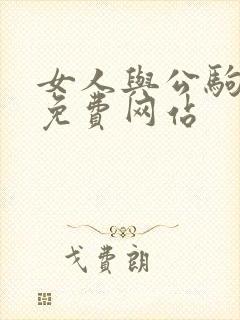 女人與公駒
免費网佔
戈費朗